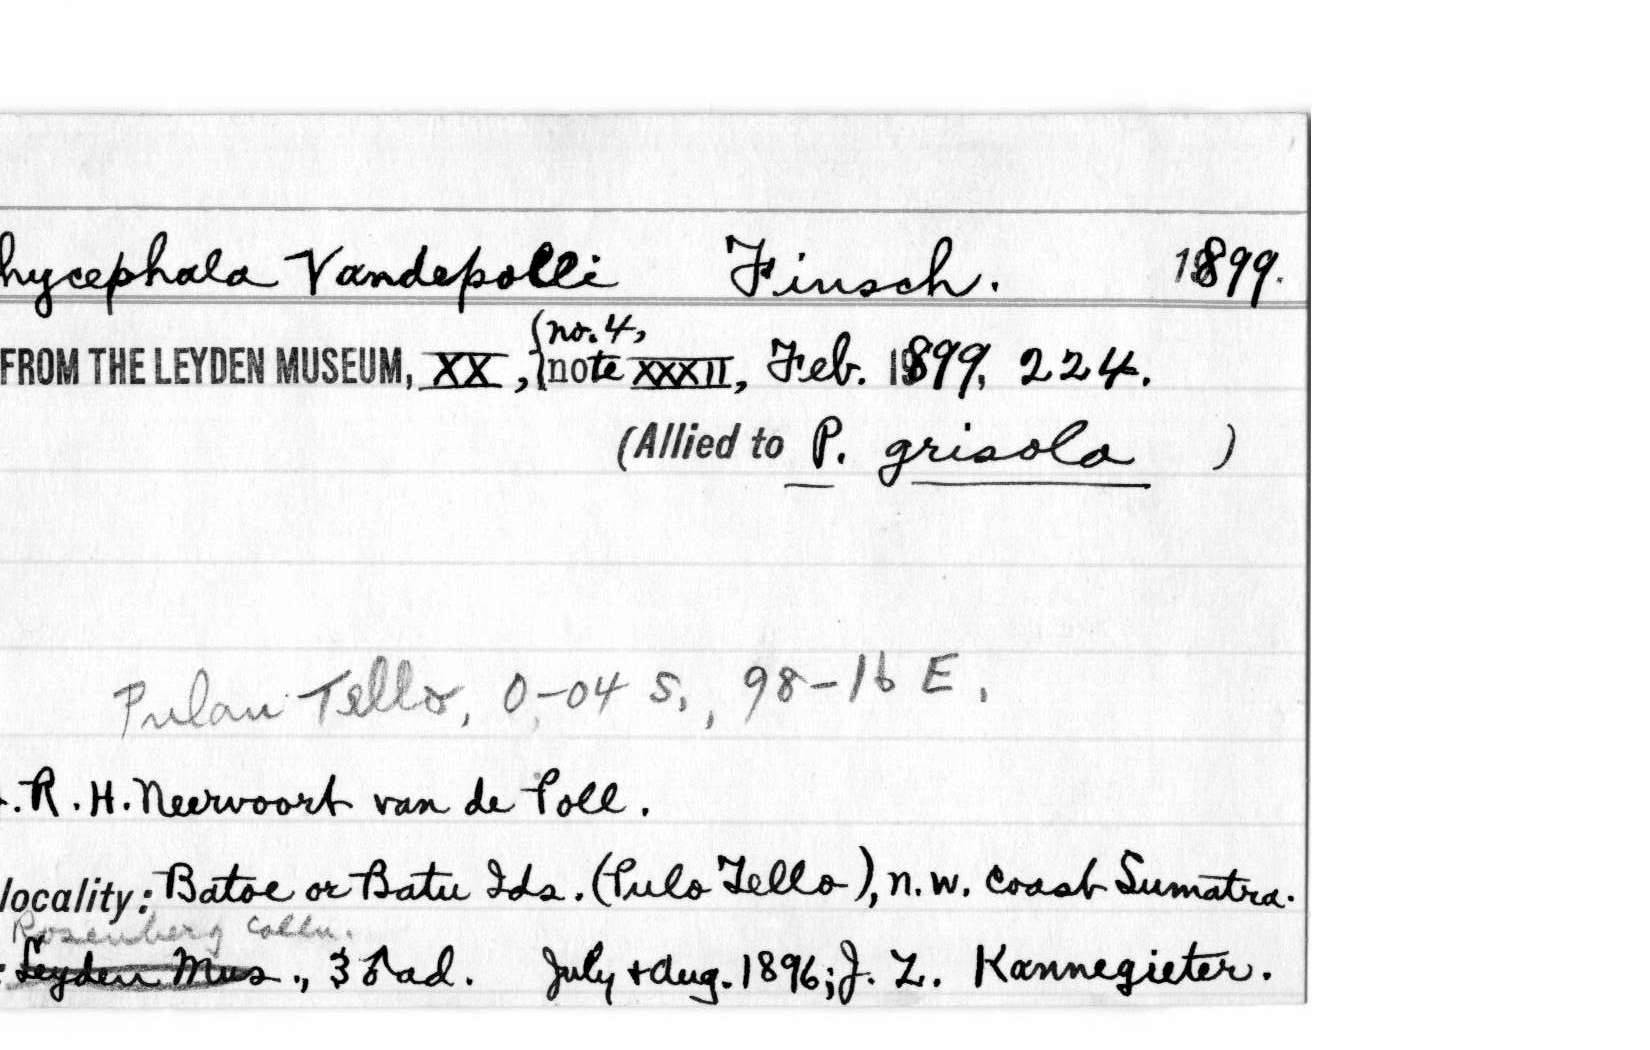 hycephala Vandepolli Finsch. 1899.
(no. 4,
FROM THE LEYDEN MUSEUM, XX, note XXXII, Feb. 1899, 224.
(Allied to P. grisola )
Pulau Tello, 0-04 S., 98-16 E.
. R. H. Neervoort van de Poll.
locality: Batoe or Batu Ids. (Pulo Tello), n.w. coast Sumatra.
Rosenberg Colln.
: Leyden Mus., 3 ♂ ad. July + Aug. 1896; J. Z. Kannegieter.